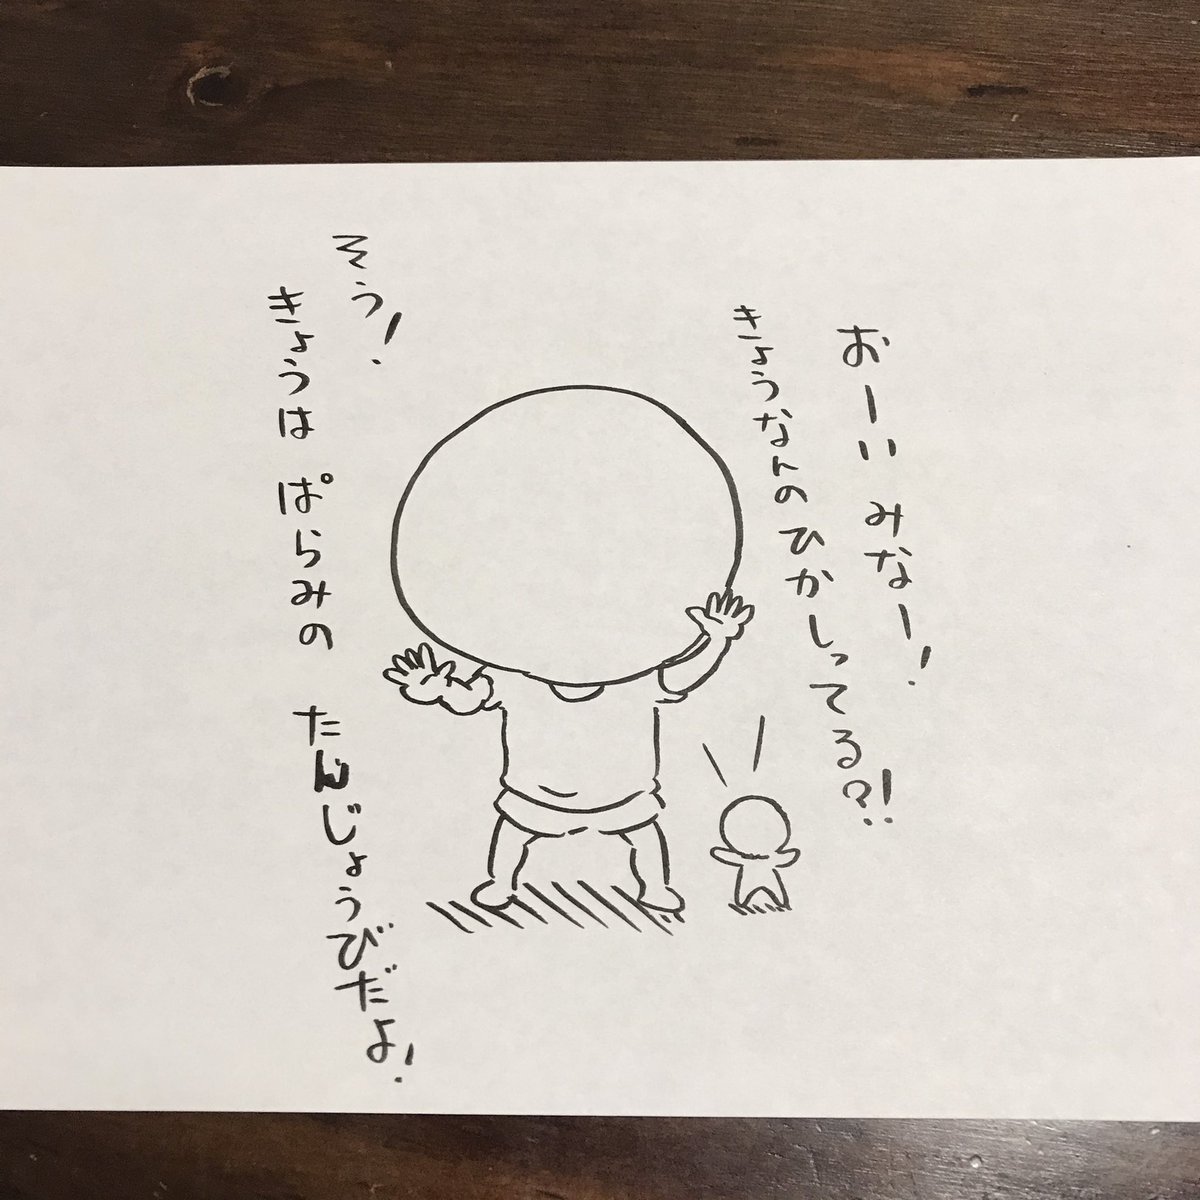 おーい みなー!
きょうなんのひかしってる?!
そう!
きょうは ぱらみの たんじょうびだよ!